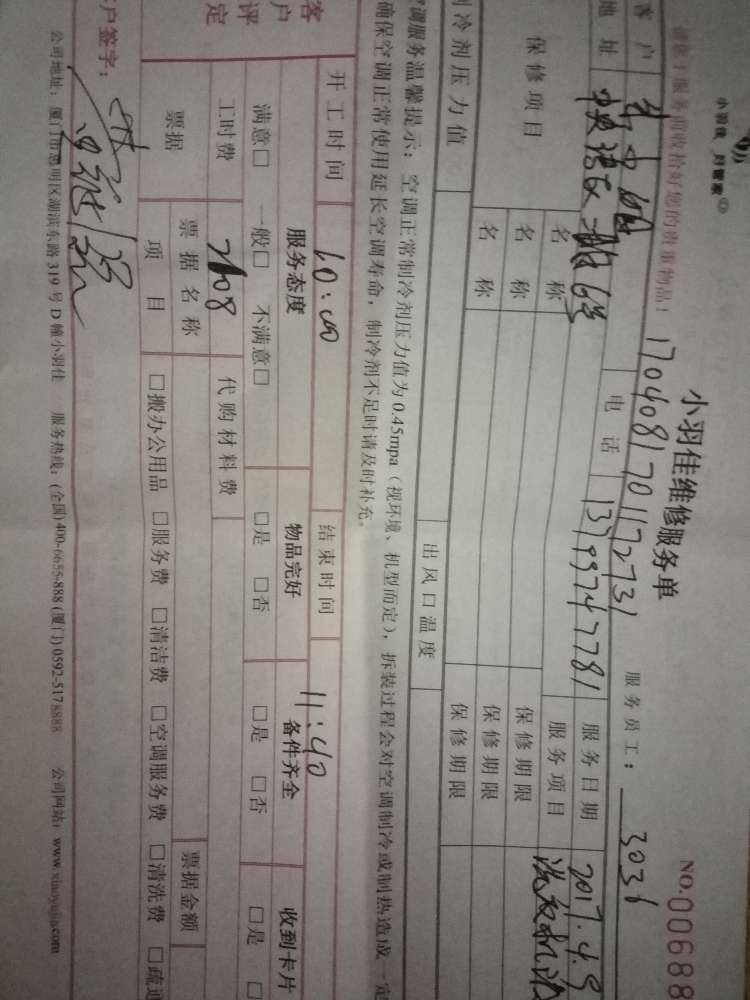 小羽佳 刘管家
请您于服务前收拾好您的贵重物品！
小羽佳维修服务单
NO.00688
1704081701172731
服务员工： 3036
客户
电话 13799747781
服务日期 2017.4.9
地址
服务项目
保修项目
名称 保修期限
名称 保修期限
名称 保修期限
制冷剂压力值 出风口温度
空调服务温馨提示：空调正常制冷剂压力值为0.45mpa（视环境、机型而定），拆装过程会对空调制冷或制热造成一定
确保空调正常使用延长空调寿命，制冷剂不足时请及时补充。
开工时间 10:00 结束时间 11:40
客户评定
服务态度 物品完好 备件齐全 收到卡片
满意□ 一般□ 不满意□ □是 □否 □是 □否 □是 □
工时费 代购材料费
票据 票据名称 票据金额
项目 □搬办公用品 □服务费 □清洁费 □空调服务费 □清洗费 □疏通
客户签字：
公司地址：厦门市思明区湖滨东路319号D幢小羽佳 服务热线：(全国)400-6655-888 (厦门) 0592-5178888 公司网站：www.xiaoyujia.com